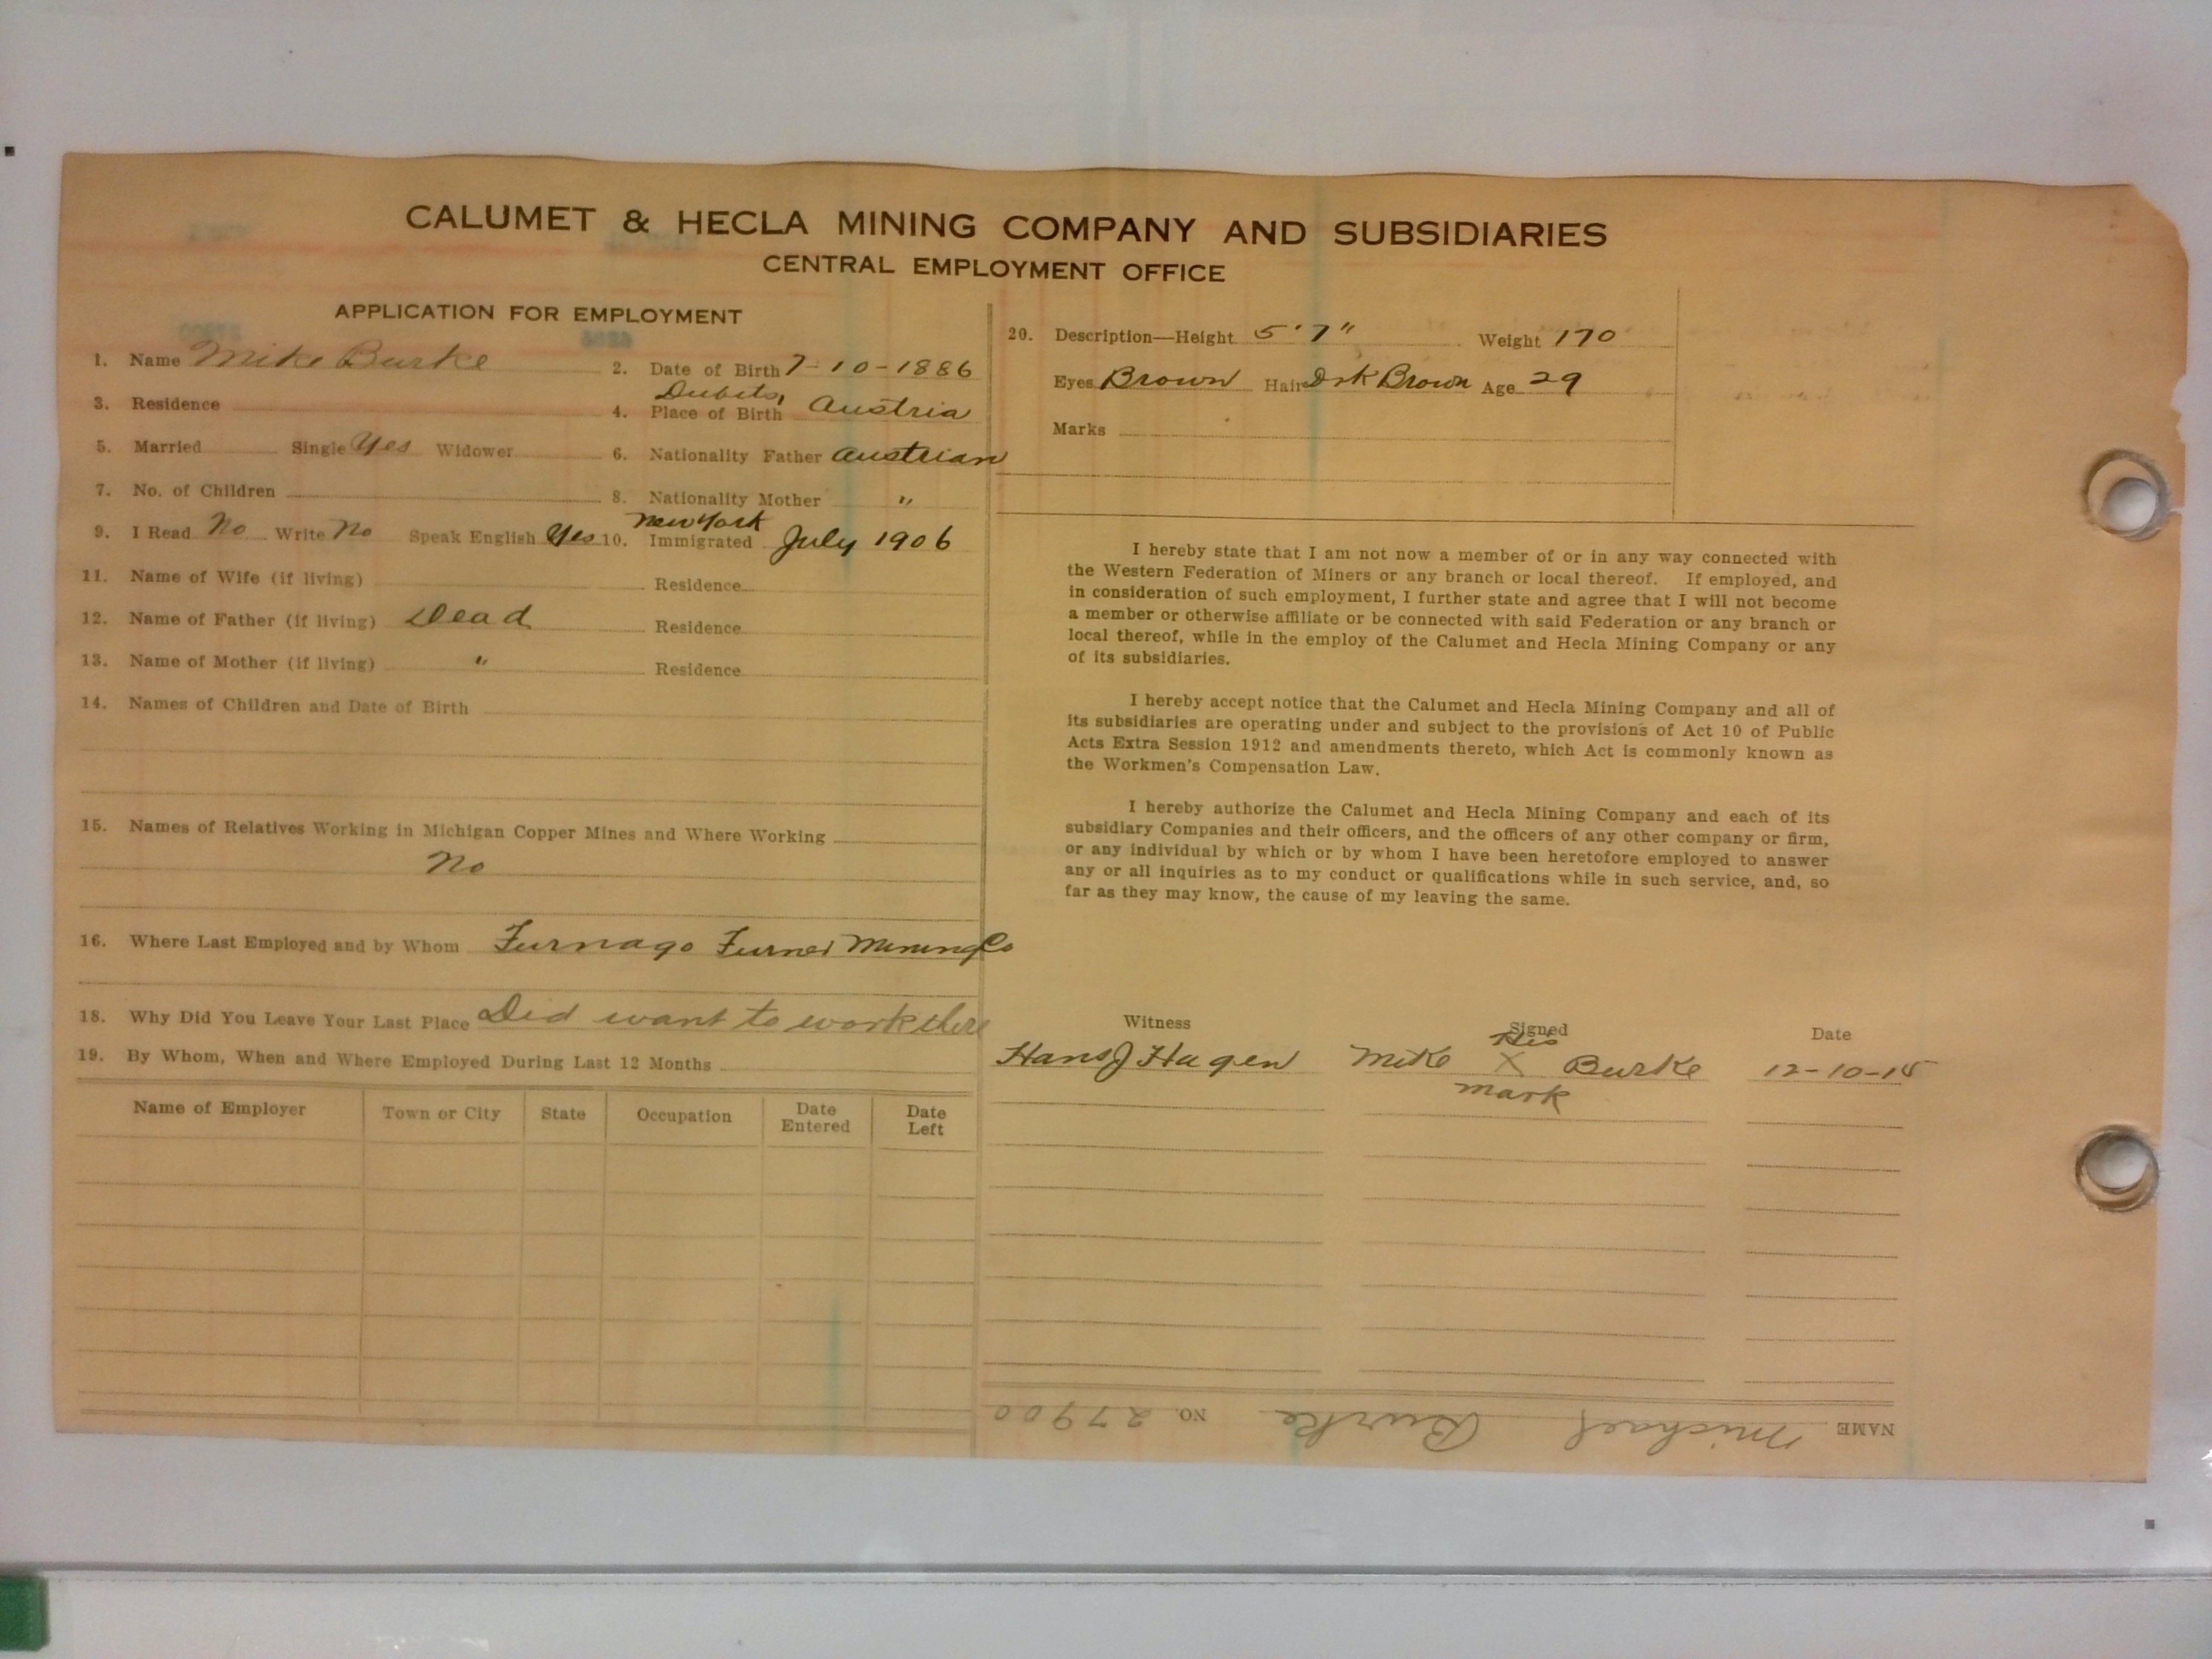 CALUMET & HECLA MINING COMPANY AND SUBSIDIARIES
CENTRAL EMPLOYMENT OFFICE
APPLICATION FOR EMPLOYMENT
1. Name Mike Burke 2. Date of Birth 7-10-1886
3. Residence 4. Place of Birth Dubits, Austria
5. Married Single Yes Widower 6. Nationality Father Austrian
7. No. of Children 8. Nationality Mother "
9. I Read No Write No Speak English Yes 10. Immigrated New York July 1906
11. Name of Wife (if living) Residence
12. Name of Father (if living) Dead Residence
13. Name of Mother (if living) " Residence
14. Names of Children and Date of Birth
15. Names of Relatives Working in Michigan Copper Mines and Where Working
No
16. Where Last Employed and by Whom Mining Co
18. Why Did You Leave Your Last Place Did want to work there
19. By Whom, When and Where Employed During Last 12 Months
Name of Employer Town or City State Occupation Date Entered Date Left
20. Description—Height 5'7" Weight 170
Eyes Brown Hair Drk Brown Age 29
Marks
I hereby state that I am not now a member of or in any way connected with
the Western Federation of Miners or any branch or local thereof. If employed, and
in consideration of such employment, I further state and agree that I will not become
a member or otherwise affiliate or be connected with said Federation or any branch or
local thereof, while in the employ of the Calumet and Hecla Mining Company or any
of its subsidiaries.
I hereby accept notice that the Calumet and Hecla Mining Company and all of
its subsidiaries are operating under and subject to the provisions of Act 10 of Public
Acts Extra Session 1912 and amendments thereto, which Act is commonly known as
the Workmen's Compensation Law.
I hereby authorize the Calumet and Hecla Mining Company and each of its
subsidiary Companies and their officers, and the officers of any other company or firm,
or any individual by which or by whom I have been heretofore employed to answer
any or all inquiries as to my conduct or qualifications while in such service, and, so
far as they may know, the cause of my leaving the same.
Witness Signed Date
Hans J Hagen Mike His X mark Burke 12-10-15
NAME Michael Burke NO. 27900